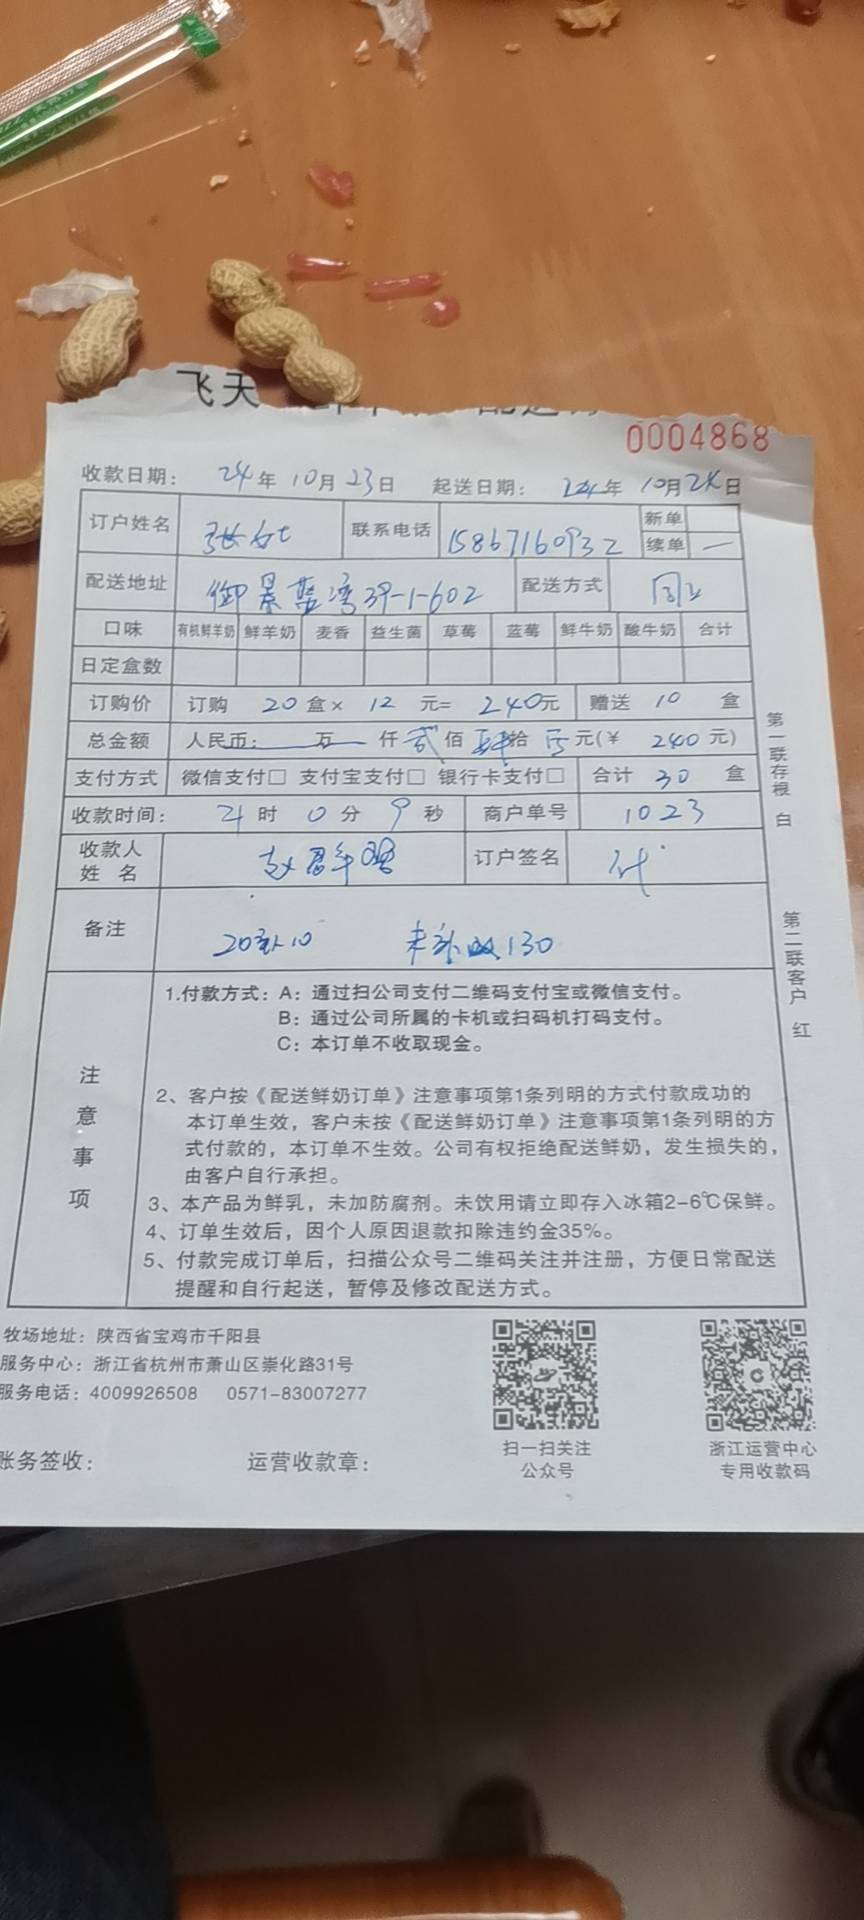 飞天
0004868
收款日期: 24年10月23日 起送日期: 年10月 日
订户姓名 张 联系电话 15867160932 新单
续单 —
配送地址 御景蓝湾39-1-602 配送方式
口味 有机鲜羊奶 鲜羊奶 麦香 益生菌 草莓 蓝莓 鲜牛奶 酸牛奶 合计
日定盒数
订购价 订购 20盒× 12 元= 240元 赠送 10 盒
总金额 人民币: 万 仟贰佰肆拾 元(¥ 240元)
支付方式 微信支付□ 支付宝支付□ 银行卡支付□ 合计 30 盒
收款时间: 21时 0分 9秒 商户单号 1023
收款人
姓 名 赵 订户签名 代
备注 20 10 未 130
注意事项
1.付款方式: A: 通过扫公司支付二维码支付宝或微信支付。
B: 通过公司所属的卡机或扫码机打码支付。
C: 本订单不收取现金。
2、客户按《配送鲜奶订单》注意事项第1条列明的方式付款成功的
本订单生效，客户未按《配送鲜奶订单》注意事项第1条列明的方
式付款的，本订单不生效。公司有权拒绝配送鲜奶，发生损失的，
由客户自行承担。
3、本产品为鲜乳，未加防腐剂。未饮用请立即存入冰箱2-6℃保鲜。
4、订单生效后，因个人原因退款扣除违约金35%。
5、付款完成订单后，扫描公众号二维码关注并注册，方便日常配送
提醒和自行起送，暂停及修改配送方式。
第一联存根 白
第二联客户 红
牧场地址: 陕西省宝鸡市千阳县
服务中心: 浙江省杭州市萧山区崇化路31号
服务电话: 4009926508 0571-83007277
扫一扫关注
公众号
浙江运营中心
专用收款码
账务签收: 运营收款章: